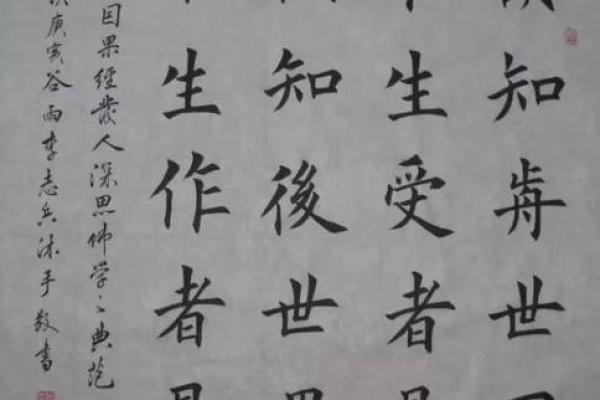 知歬世
生受者是
知後世果
生作者是
因果經發人深思佛学之典范
庚寅谷雨李志兵沐手敬書